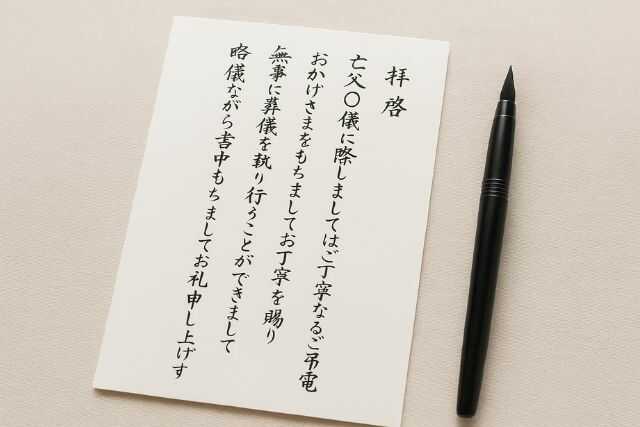 拝啓
亡父〇儀に際しましてはご丁寧なるご弔電
おかげさまをもちましてお丁寧を賜り
無事に葬儀を執り行うことができまして
略儀ながら書中もちましてお礼申し上げす